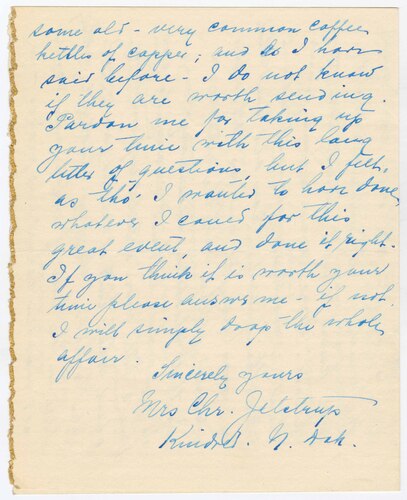 some old - very common coffee
kettles of copper; and as I have
said before - I do not know
if they are worth sending.
Pardon me for taking up
your time with this long
letter of questions, but I felt,
as tho' I wanted to have done
whatever I could for this
great event, and done it right.
If you think it is worth your
time please answer me - if not,
I will simply drop the whole
affair.
Sincerely yours
Mrs Chr. Jelstrup
Kindred. N. Dak.